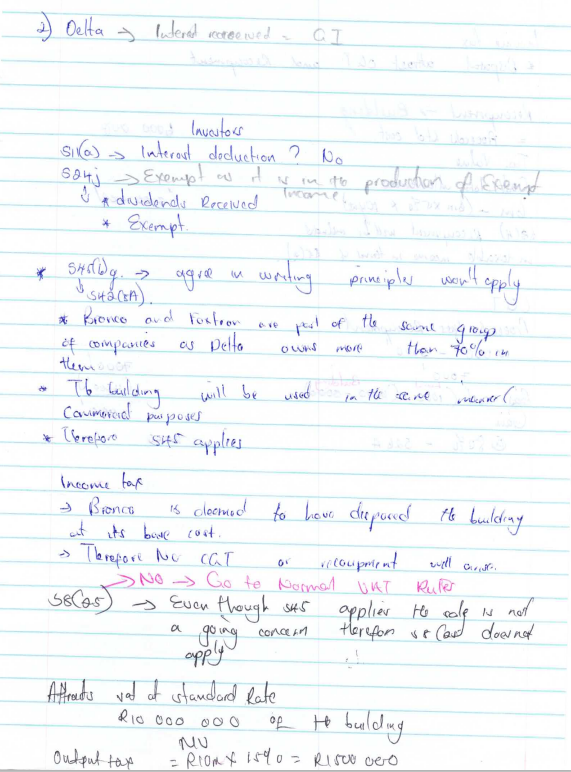 2) Delta → Interest received = GI
Investors
S11(a) → Interest deduction ? No
S24j → Exempt as it is in the production of Exempt
Income
↓ * dividends Received
* Exempt.
* S45(6)g. → agree in writing principles won't apply
↓ S42(8A).
* Bronco and Foxtron are part of the same group
of companies as Delta owns more than 70% in
them
* The building will be used in the same manner (
Commercial purposes
* Therefore S45 applies
Income tax
→ Bronco is deemed to have disposed the building
at its base cost.
→ Therefore No CGT or recoupment will arise.
→ No → Go to Normal VAT Rules
S8(25) → Even though S45 applies the sale is not
a going concern therefore s8(25) does not
apply
Attracts vat at standard Rate
R10 000 000 of the building
MV
Output tax = R10m x 15% = R1 500 000